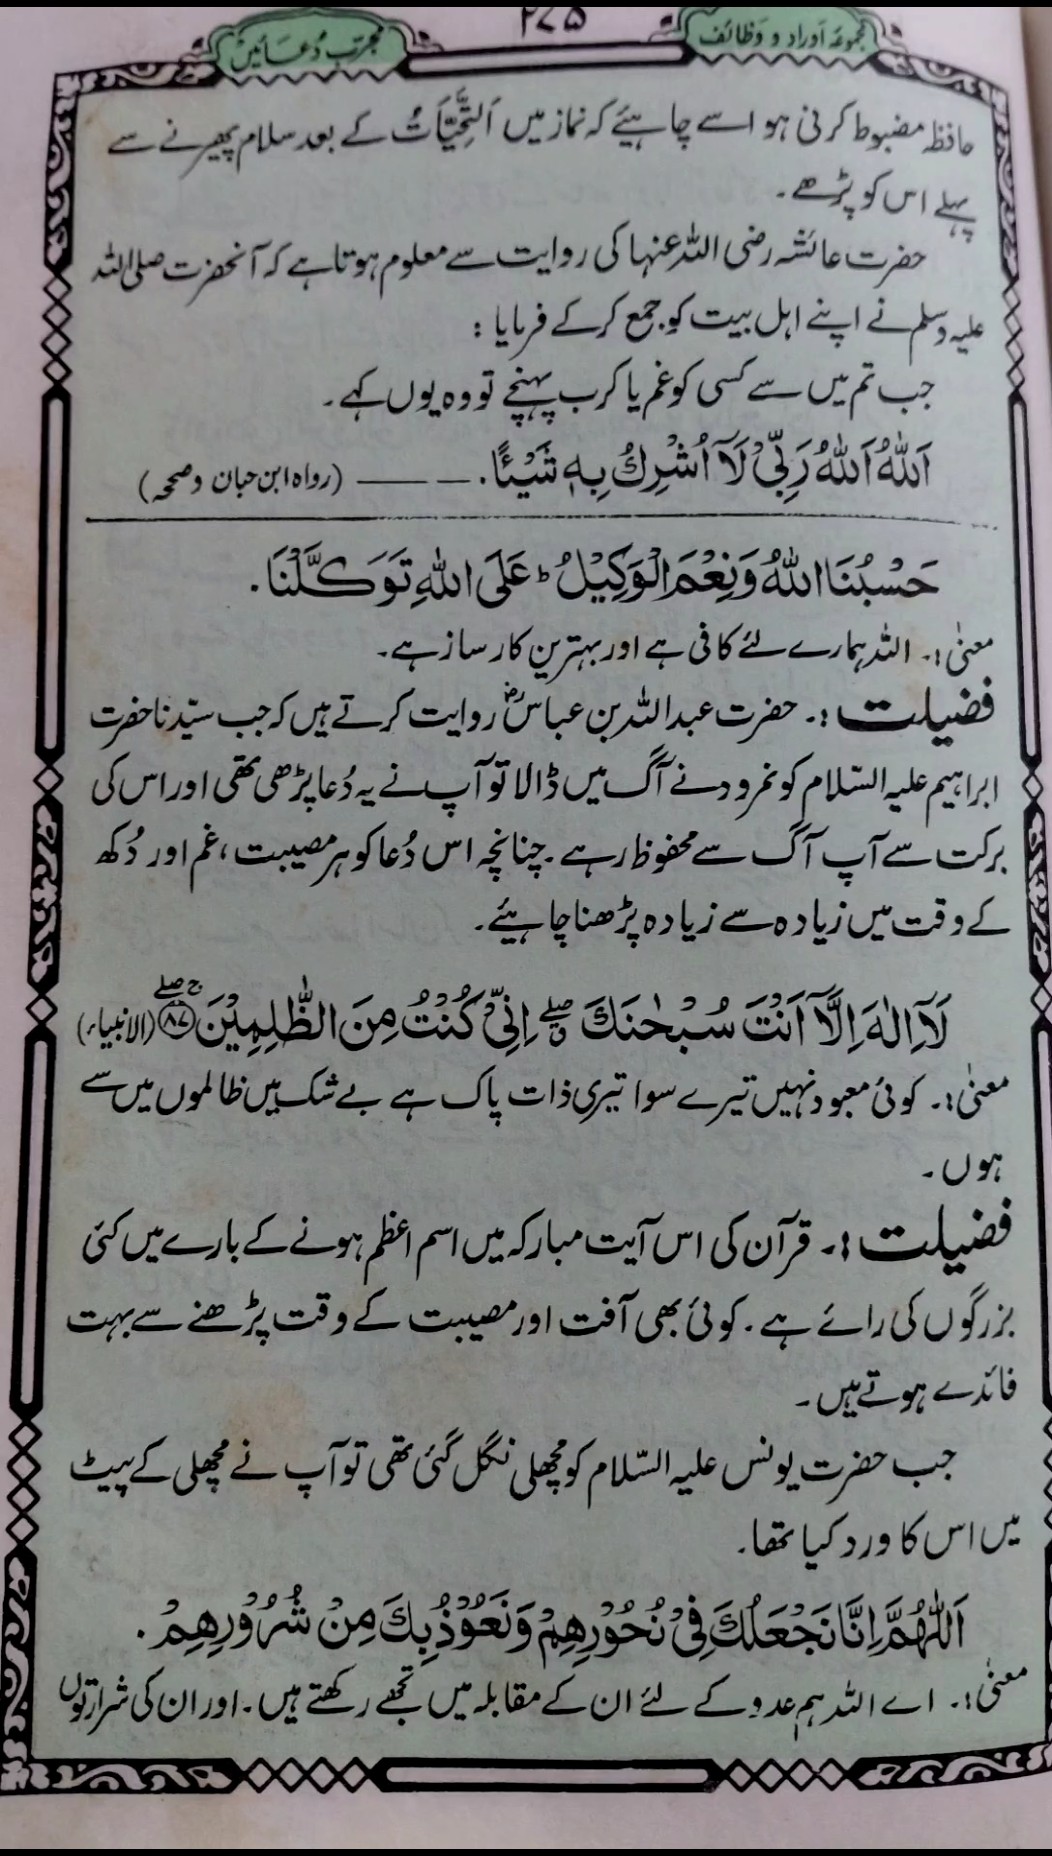 مجموعہ اوراد و وظائف
۲۷۵
مجرّب دُعائیں
حافظہ مضبوط کرنی ہو اسے چاہیئے کہ نماز میں اَلتَّحِیَّاتُ کے بعد سلام پھیرنے سے
پہلے اس کو پڑھے۔
حضرت عائشہ رضی اللہ عنہا کی روایت سے معلوم ہوتا ہے کہ آنحضرت صلی اللہ
علیہ وسلم نے اپنے اہل بیت کو جمع کرکے فرمایا :
جب تم میں سے کسی کو غم یا کرب پہنچے تو وہ یوں کہے۔
اَللّٰهُ اَللّٰهُ رَبِّیْ لَآ اُشْرِكُ بِهٖ شَیْئًا. ـــ ـــ (رواہ ابن حبان وصححہ)
حَسْبُنَا اللّٰهُ وَنِعْمَ الْوَكِیْلُ ؕ عَلَی اللّٰهِ تَوَكَّلْنَا.
معنیٰ :۔ اللہ ہمارے لئے کافی ہے اور بہترین کارساز ہے۔
فضیلت :۔ حضرت عبداللہ بن عباسؓ روایت کرتے ہیں کہ جب سیّدنا حضرت
ابراہیم علیہ السّلام کو نمرود نے آگ میں ڈالا تو آپ نے یہ دُعا پڑھی تھی اور اس کی
برکت سے آپ آگ سے محفوظ رہے۔ چنانچہ اس دُعا کو ہر مصیبت، غم اور دُکھ
کے وقت میں زیادہ سے زیادہ پڑھنا چاہیئے۔
لَآ اِلٰهَ اِلَّآ اَنْتَ سُبْحٰنَكَ ۖ اِنِّیْ كُنْتُ مِنَ الظّٰلِمِیْنَ ﴿۸۷﴾ (الانبیاء)
معنیٰ :۔ کوئی معبود نہیں تیرے سوا تیری ذات پاک ہے بے شک میں ظالموں میں سے
ہوں۔
فضیلت :۔ قرآن کی اس آیت مبارکہ میں اسم اعظم ہونے کے بارے میں کئی
بزرگوں کی رائے ہے۔ کوئی بھی آفت اور مصیبت کے وقت پڑھنے سے بہت
فائدے ہوتے ہیں۔
جب حضرت یونس علیہ السّلام کو مچھلی نگل گئی تھی تو آپ نے مچھلی کے پیٹ
میں اس کا ورد کیا تھا۔
اَللّٰهُمَّ اِنَّا نَجْعَلُكَ فِیْ نُحُوْرِهِمْ وَنَعُوْذُ بِكَ مِنْ شُرُوْرِهِمْ.
معنیٰ :۔ اے اللہ ہم عدو کے لئے ان کے مقابلہ میں تجھے رکھتے ہیں۔ اور ان کی شرارتوں